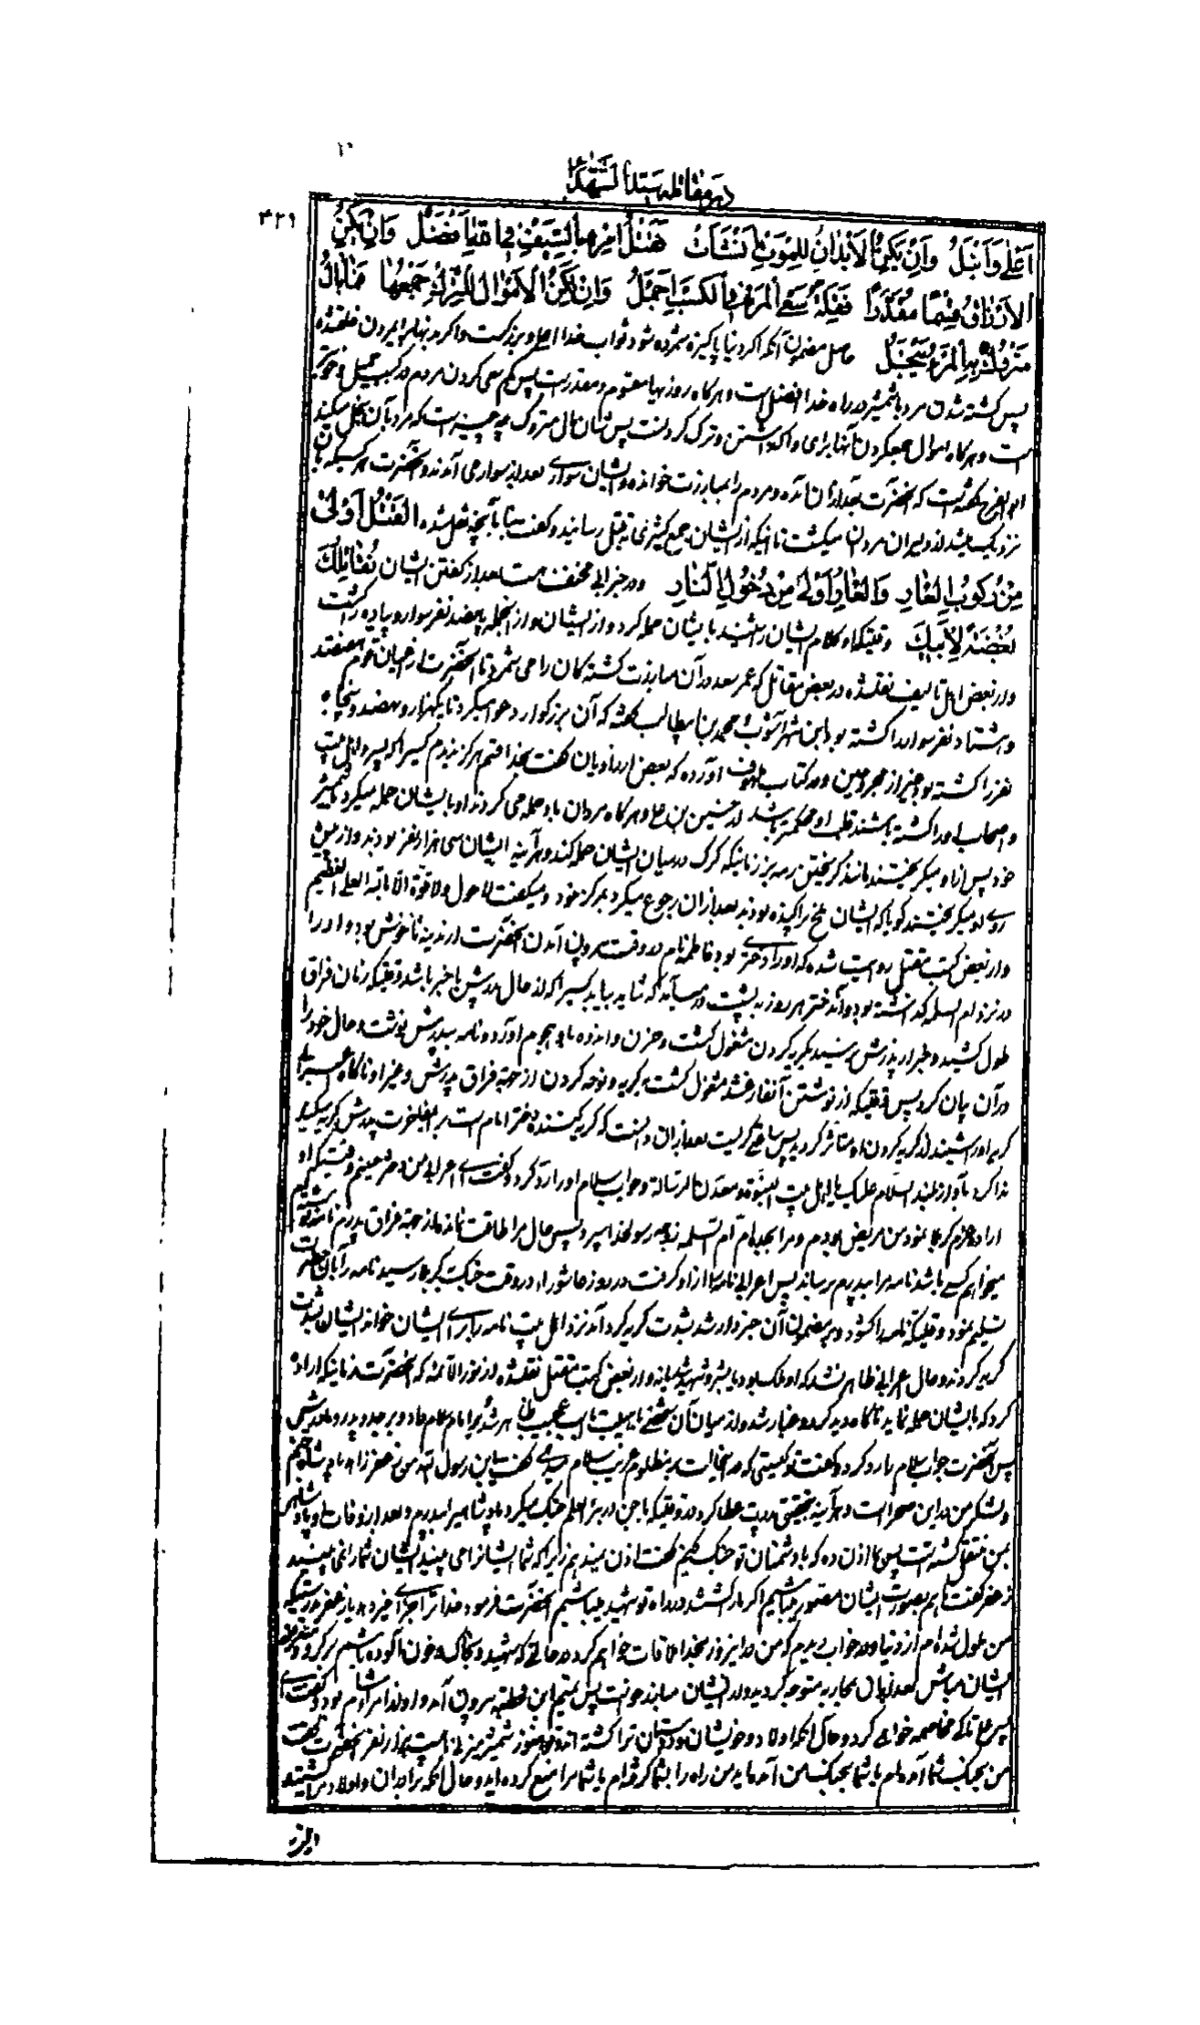 در مقاتله سید الشهداء
۴۲۹
اَعْلٰی وَاَنْبَلُ وَاِنْ یَکُنِ الْاَبْدَانُ لِلْمَوْتِ اُنْشِأَتْ فَقَتْلُ امْرِءٍ بِالسَّیْفِ فِی اللّٰهِ اَفْضَلُ وَاِنْ یَکُنِ
الْاَرْزَاقُ قِسْمًا مُقَدَّرًا فَقِلَّةُ سَعْیِ الْمَرْءِ فِی الْکَسْبِ اَجْمَلُ وَاِنْ یَکُنِ الْاَمْوَالُ لِلتَّرْكِ جَمْعُهَا فَمَا بَالُ
مَتْرُوكٍ بِهِ الْمَرْءُ یَبْخَلُ حاصل مضمون آنکه اگر دنیا پاکیزه شمرده شود ثواب خدا اعلی و بزرگ است و اگر بدنها برای مردن خلق شده
پس کشته شدن مرد بشمشیر در راه خدا افضل است و هرگاه روزیها مقسوم و مقدر است پس کم سعی کردن مردم در کسب جمیل و خوبتر
است و هرگاه اموال جمع کردن آنها برای واگذاشتن و ترک کردنست پس شان مال متروک چه چیز است که مرد بآن بخل میکند
ابو الفرج گفته است که آنحضرت بعد ازان آمده و مردم را بمبارزت خوانده و ایشان سوار بعد از سوار می آمدند و آنحضرت هر کسیکه باو
نزدیک میشد از دلیران مردان میکشت تا اینکه از ایشان جمع کثیری بقتل رسانید و گفت بیتا بآنچه نقل شده اَلْقَتْلُ اَوْلٰی
مِنْ رُکُوبِ الْعَارِ وَالْعَارُ اَوْلٰی مِنْ دُخُولِ النَّارِ و در خبر ابی مخنف هست بعد از گفتن ایشان نُقَاتِلُكَ
بُغْضًا لِاَبِیكَ وقتیکه او کلام ایشان را شنید بایشان حمله کرد و از ایشان و از انجمله پانصد نفر سوار و پیاده را کشت
و در بعض اهل تالیف نقلشده در بعض مقاتل که عمر سعد در آن مبارزت کشتگان را می شمرد تا آنحضرت از میان قوم هفتصد
و هشتاد نفر سوار را کشته بود ابن شهر آشوب و محمد بن ابیطالب گفته که آن بزرگوار دعوا میکرد تا یکهزار و نهصد و پنجاه
نفر را کشته بود غیر از مجروحین و در کتاب ملهوف آورده که بعض از راویان گفت بخدا قسم هرگز ندیدم کسی را که پسر و اهل بیت
و اصحاب او را کشته باشند قلب او محکمتر باشد از حسین بن علی و هرگاه مردان باو حمله می کردند او بایشان حمله میکرد بشمشیر
خود پس از او میگریختند مانند گریختن رمه بز زمانیکه گرگ در میان ایشان حمله کند و هر آینه ایشان سی هزار نفر بودند و از پیش
روی او میگریختند گویا که ایشان ملخ پراکنده بودند بعد ازان رجوع میکرد بمرکز خود و میگفت لا حول ولا قوة الا بالله العلی العظیم
و در بعض کتب مقتل روایت شده که او را دختری بود فاطمه نام در وقت بیرون آمدن آنحضرت از مدینه ناخوش بود و او را
در نزد ام السلمه گذاشته بود و آن دختر هر روز به پشت در میآمد که شاید بیابد کسی را که از حال پدرش با خبر باشد وقتیکه زمان فراق
طول کشید و خبر از پدرش نرسید بگریه کردن مشغول گشت و حزن و اندوه باو هجوم آورد و نامه بپدرش نوشت و حال خود را
در آن بیان کرد پس وقتیکه از نوشتن آن فارغ شد مشغول گشت بگریه و نوحه کردن از جهة فراق پدرش و غیر او ناگاه عربی
گریه او را شنید از گریه کردن او متأثر گردید پس ساعتی گریست بعد ازان دانست که گریه کننده دختر امام است بر مفارقت پدرش گریه میکند
ندا کرد بآواز بلند السلام علیکم یا اهل بیت النبوة و معدن الرسالة و جواب سلام او را رد کرد و گفت ای اعرابی من دختر حسینم وقتیکه او
اراده عزم کربلا نمود من مریض بودم و مرا بجده ام ام السلمه زوجه رسولخدا سپرد پس حال مرا طاقت نمانده از جهة فراق پدرم نامه نوشته ام
میخواهم کسی باشد نامه مرا بپدرم برساند پس اعرابی نامه را از او گرفت در روز عاشورا در وقت جنگ بکربلا رسید نامه را بآن حضرت
تسلیم نمود وقتیکه نامه را گشود و بر مضمون آن خبردار شد بشدت گریه کرد آمد نزد اهل بیت نامه را برای ایشان خواند ایشان بشدت
گریه کردند و حال اعرابی ظاهر نشد که او ملک بود یا بشر و شهید شد یا نه و از بعض کتب مقتل نقلشده از نور الائمه که آنحضرت زمانیکه اراده
کرد که بایشان حمله نماید ناگاه دید گرد و غبار شد و از میان آن شخصی
پس آنحضرت جواب سلام باو رد کرد و گفت تو کیستی که در اینحالت بر مظلوم غریب سلام گفت یابن رسول الله من زعفر زاهد پادشاه جنم
و لشکر من در این صحرا است در وقتیکه با جن در بئر العلم جنگ میکرد پادشاهی را بپدرم و بعد از وفات او پادشاهی
بمن منتقل گشته است پس ما را اذن ده که با دشمنان تو جنگ کنیم گفت اذن نمیدهم زیرا که شما ایشانرا می بینید ایشان شما را نمی بینند
زعفر گفت ما هم بصورت ایشان میشویم اگر ما را کشتند در راه تو شهید میباشیم آنحضرت فرمود خدا ترا جزای خیر دهد یا زعفر بدرستیکه
من ملول شده ام از دنیا و در خواب دیدم که من در این روز بخدا ملاقات خواهم کرد در حالتی که شهید و بخاک و خون آلوده باشم برگرد و متعرض
ایشان مباش بعد ازان بمحاربه متوجه گردید و از ایشان مبارز خواست پس تمیم ابن قحطبه بیرون آمد و او از امراء شام بود و گفت ای
پسر علی تا کی مخاصمه خواهی کرد و حال آنکه اولاد و خویشان و دوستان ترا کشته اند و تو هنوز شمشیر میزنی با بیست هزار نفر آنحضرت گفت
من بجنگ شما آمده ام یا شما بجنگ من آمده اید من راه را بشما گرفته ام یا شما مرا منع کرده اید و حال آنکه برادران و اولاد مرا کشتید